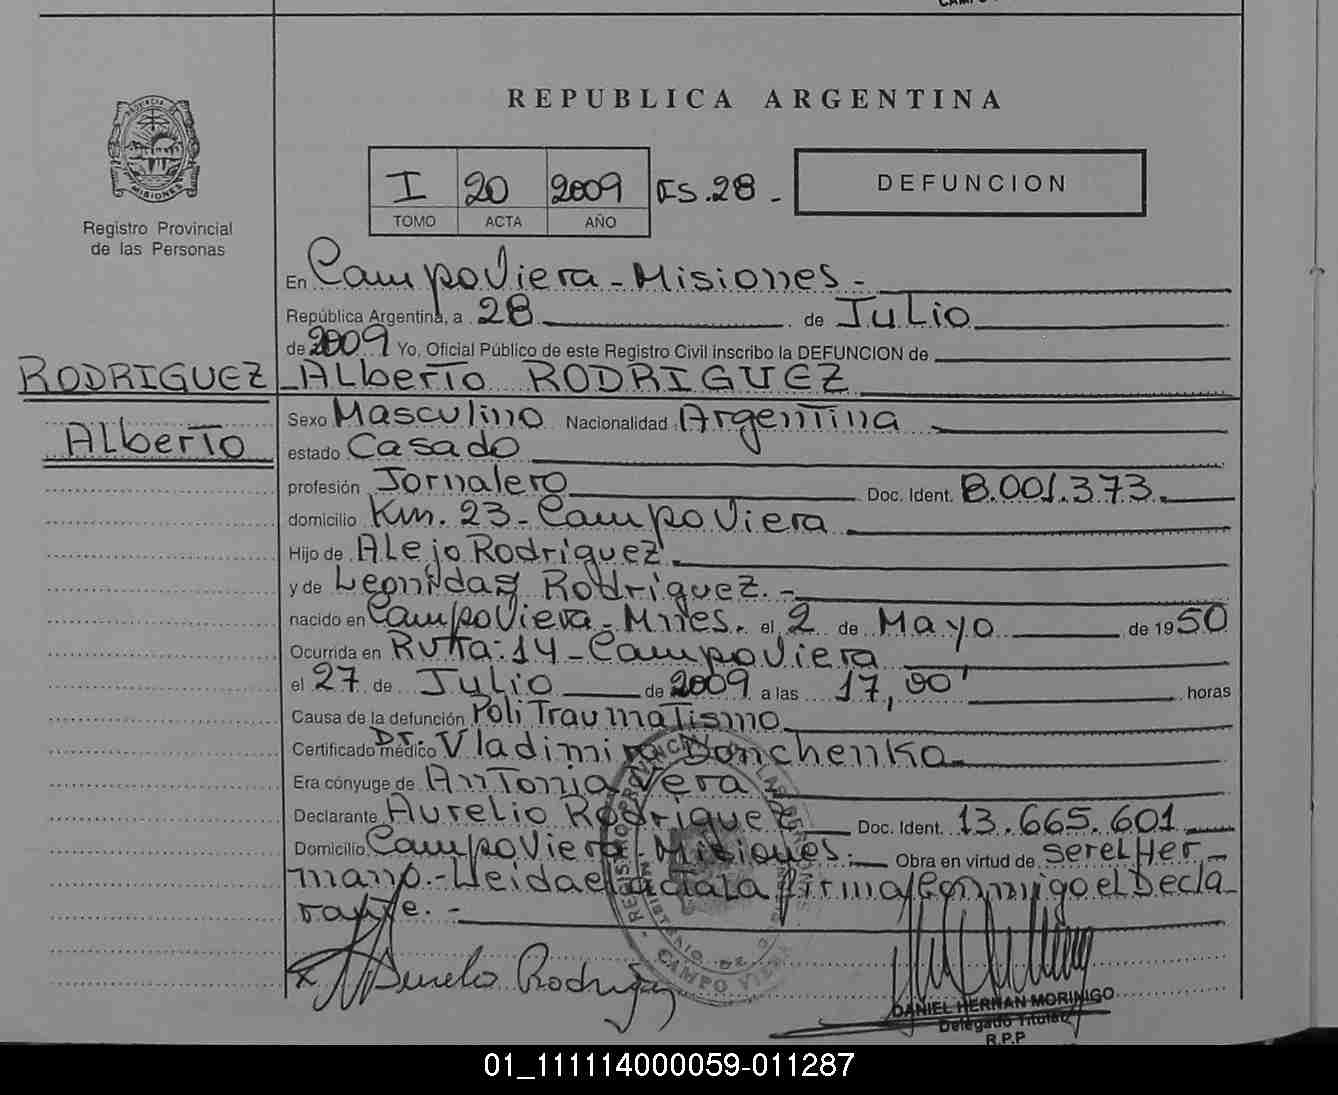 REPUBLICA ARGENTINA
PROVINCIA DE
MISIONES
Registro Provincial
de las Personas
I 20 2009 FS.28.-
TOMO ACTA AÑO
DEFUNCION
En Campo Viera - Misiones.-
República Argentina, a 28 de Julio
de 2009 Yo, Oficial Público de este Registro Civil inscribo la DEFUNCION de
RODRIGUEZ - Alberto RODRIGUEZ
Alberto
Sexo Masculino Nacionalidad Argentina
estado Casado
profesión Jornalero Doc. Ident. 8.001.373.
domicilio Km. 23 - Campo Viera
Hijo de Alejo Rodriguez
y de Leonidas Rodriguez.-
nacido en Campo Viera - Mnes. el 2 de Mayo de 1950
Ocurrida en Ruta: 14 - Campo Viera
el 27 de Julio de 2009 a las 17,00' horas
Causa de la defunción Poli Traumatismo
Certificado médico Dr. Vladimir Donchenko
Era cónyuge de Antonia Vera
Declarante Aurelio Rodriguez Doc. Ident. 13.665.601
Domicilio Campo Viera - Misiones.- Obra en virtud de ser el Her-
mano.- Leida el acta la firma conmigo el Decla-
rante.-
Aurelio Rodriguez
DANIEL HERNAN MORINIGO
Delegado Titular
R.P.P
CAMPO VIERA
01_111114000059-011287